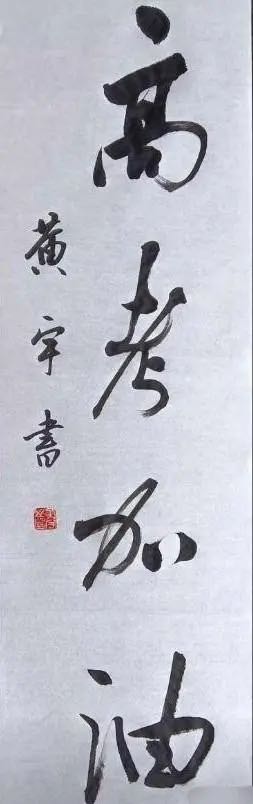 高考加油
黄宇书